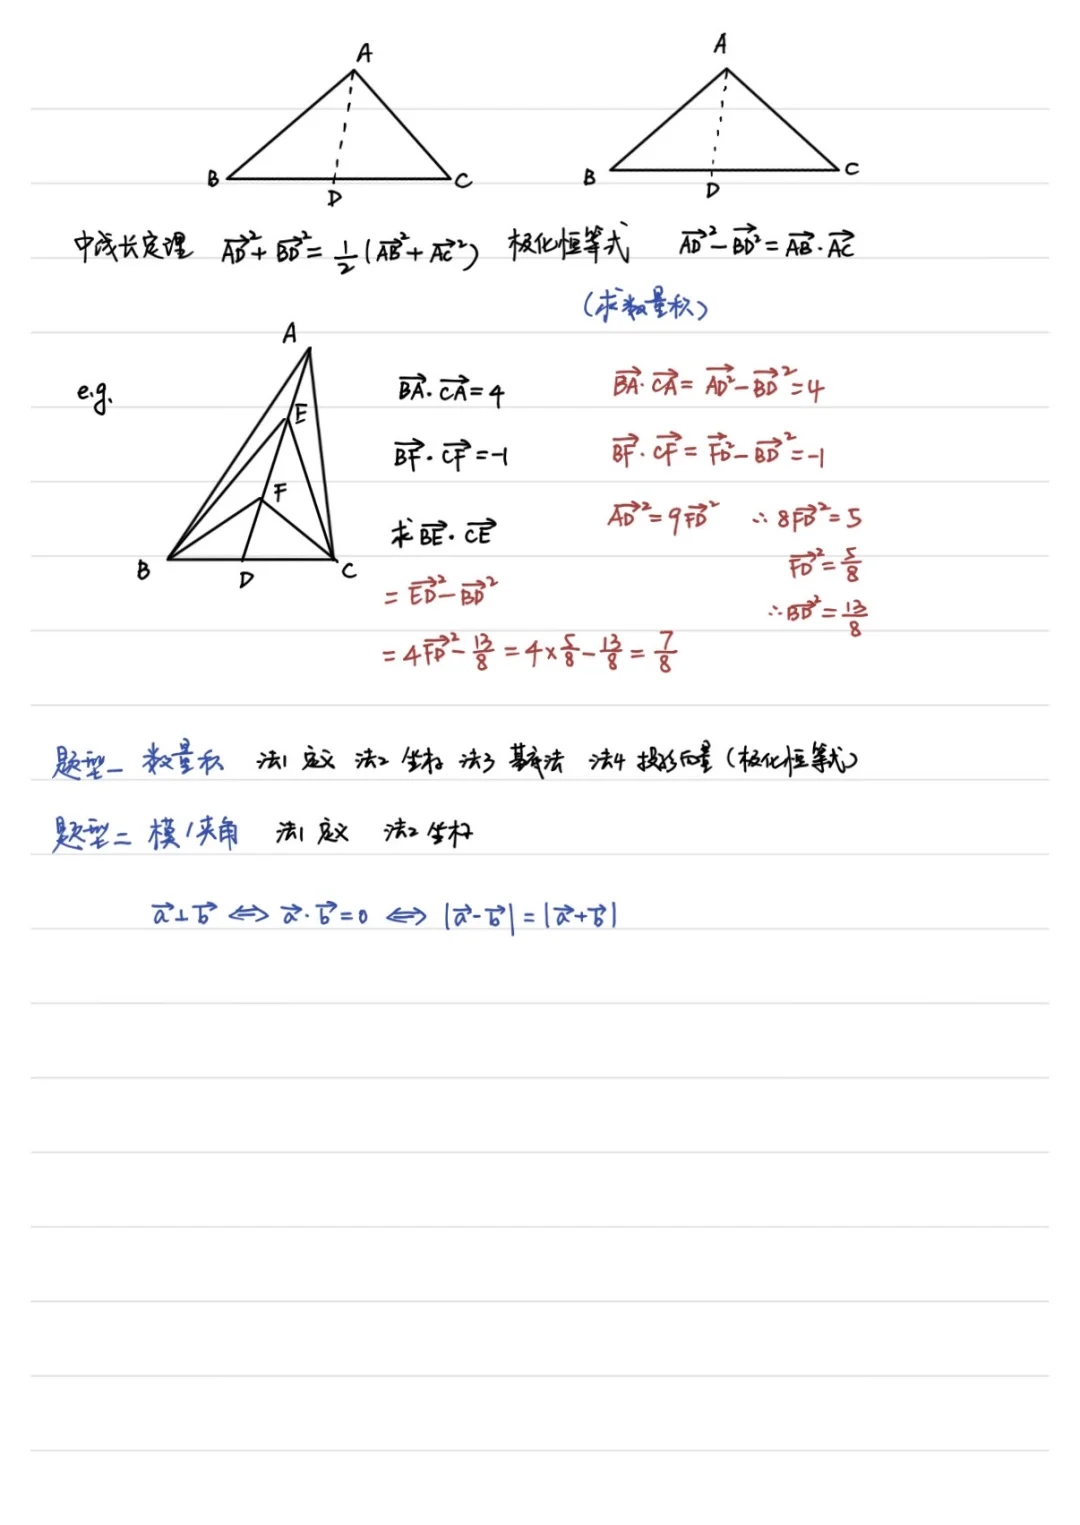 A A
B D C B D C
中线长定理 $\vec{AD}^2+\vec{BD}^2=\frac{1}{2}(\vec{AB}^2+\vec{AC}^2)$ 极化恒等式 $\vec{AD}^2-\vec{BD}^2=\vec{AB}\cdot\vec{AC}$
(求数量积)
A
e.g. E $\vec{BA}\cdot\vec{CA}=4$ $\vec{BA}\cdot\vec{CA}=\vec{AD}^2-\vec{BD}^2=4$
F $\vec{BF}\cdot\vec{CF}=-1$ $\vec{BF}\cdot\vec{CF}=\vec{FD}^2-\vec{BD}^2=-1$
求 $\vec{BE}\cdot\vec{CE}$ $\vec{AD}^2=9\vec{FD}^2$ ∴ $8\vec{FD}^2=5$
B D C $\vec{FD}^2=\frac{5}{8}$
$=\vec{ED}^2-\vec{BD}^2$ ∴ $\vec{BD}^2=\frac{13}{8}$
$=4\vec{FD}^2-\frac{13}{8}=4×\frac{5}{8}-\frac{13}{8}=\frac{7}{8}$
题型一 数量积 法1 定义 法2 坐标 法3 基底法 法4 投影向量(极化恒等式)
题型二 模/夹角 法1 定义 法2 坐标
$\vec{a}⊥\vec{b}$ ⟺ $\vec{a}\cdot\vec{b}=0$ ⟺ $|\vec{a}-\vec{b}|=|\vec{a}+\vec{b}|$